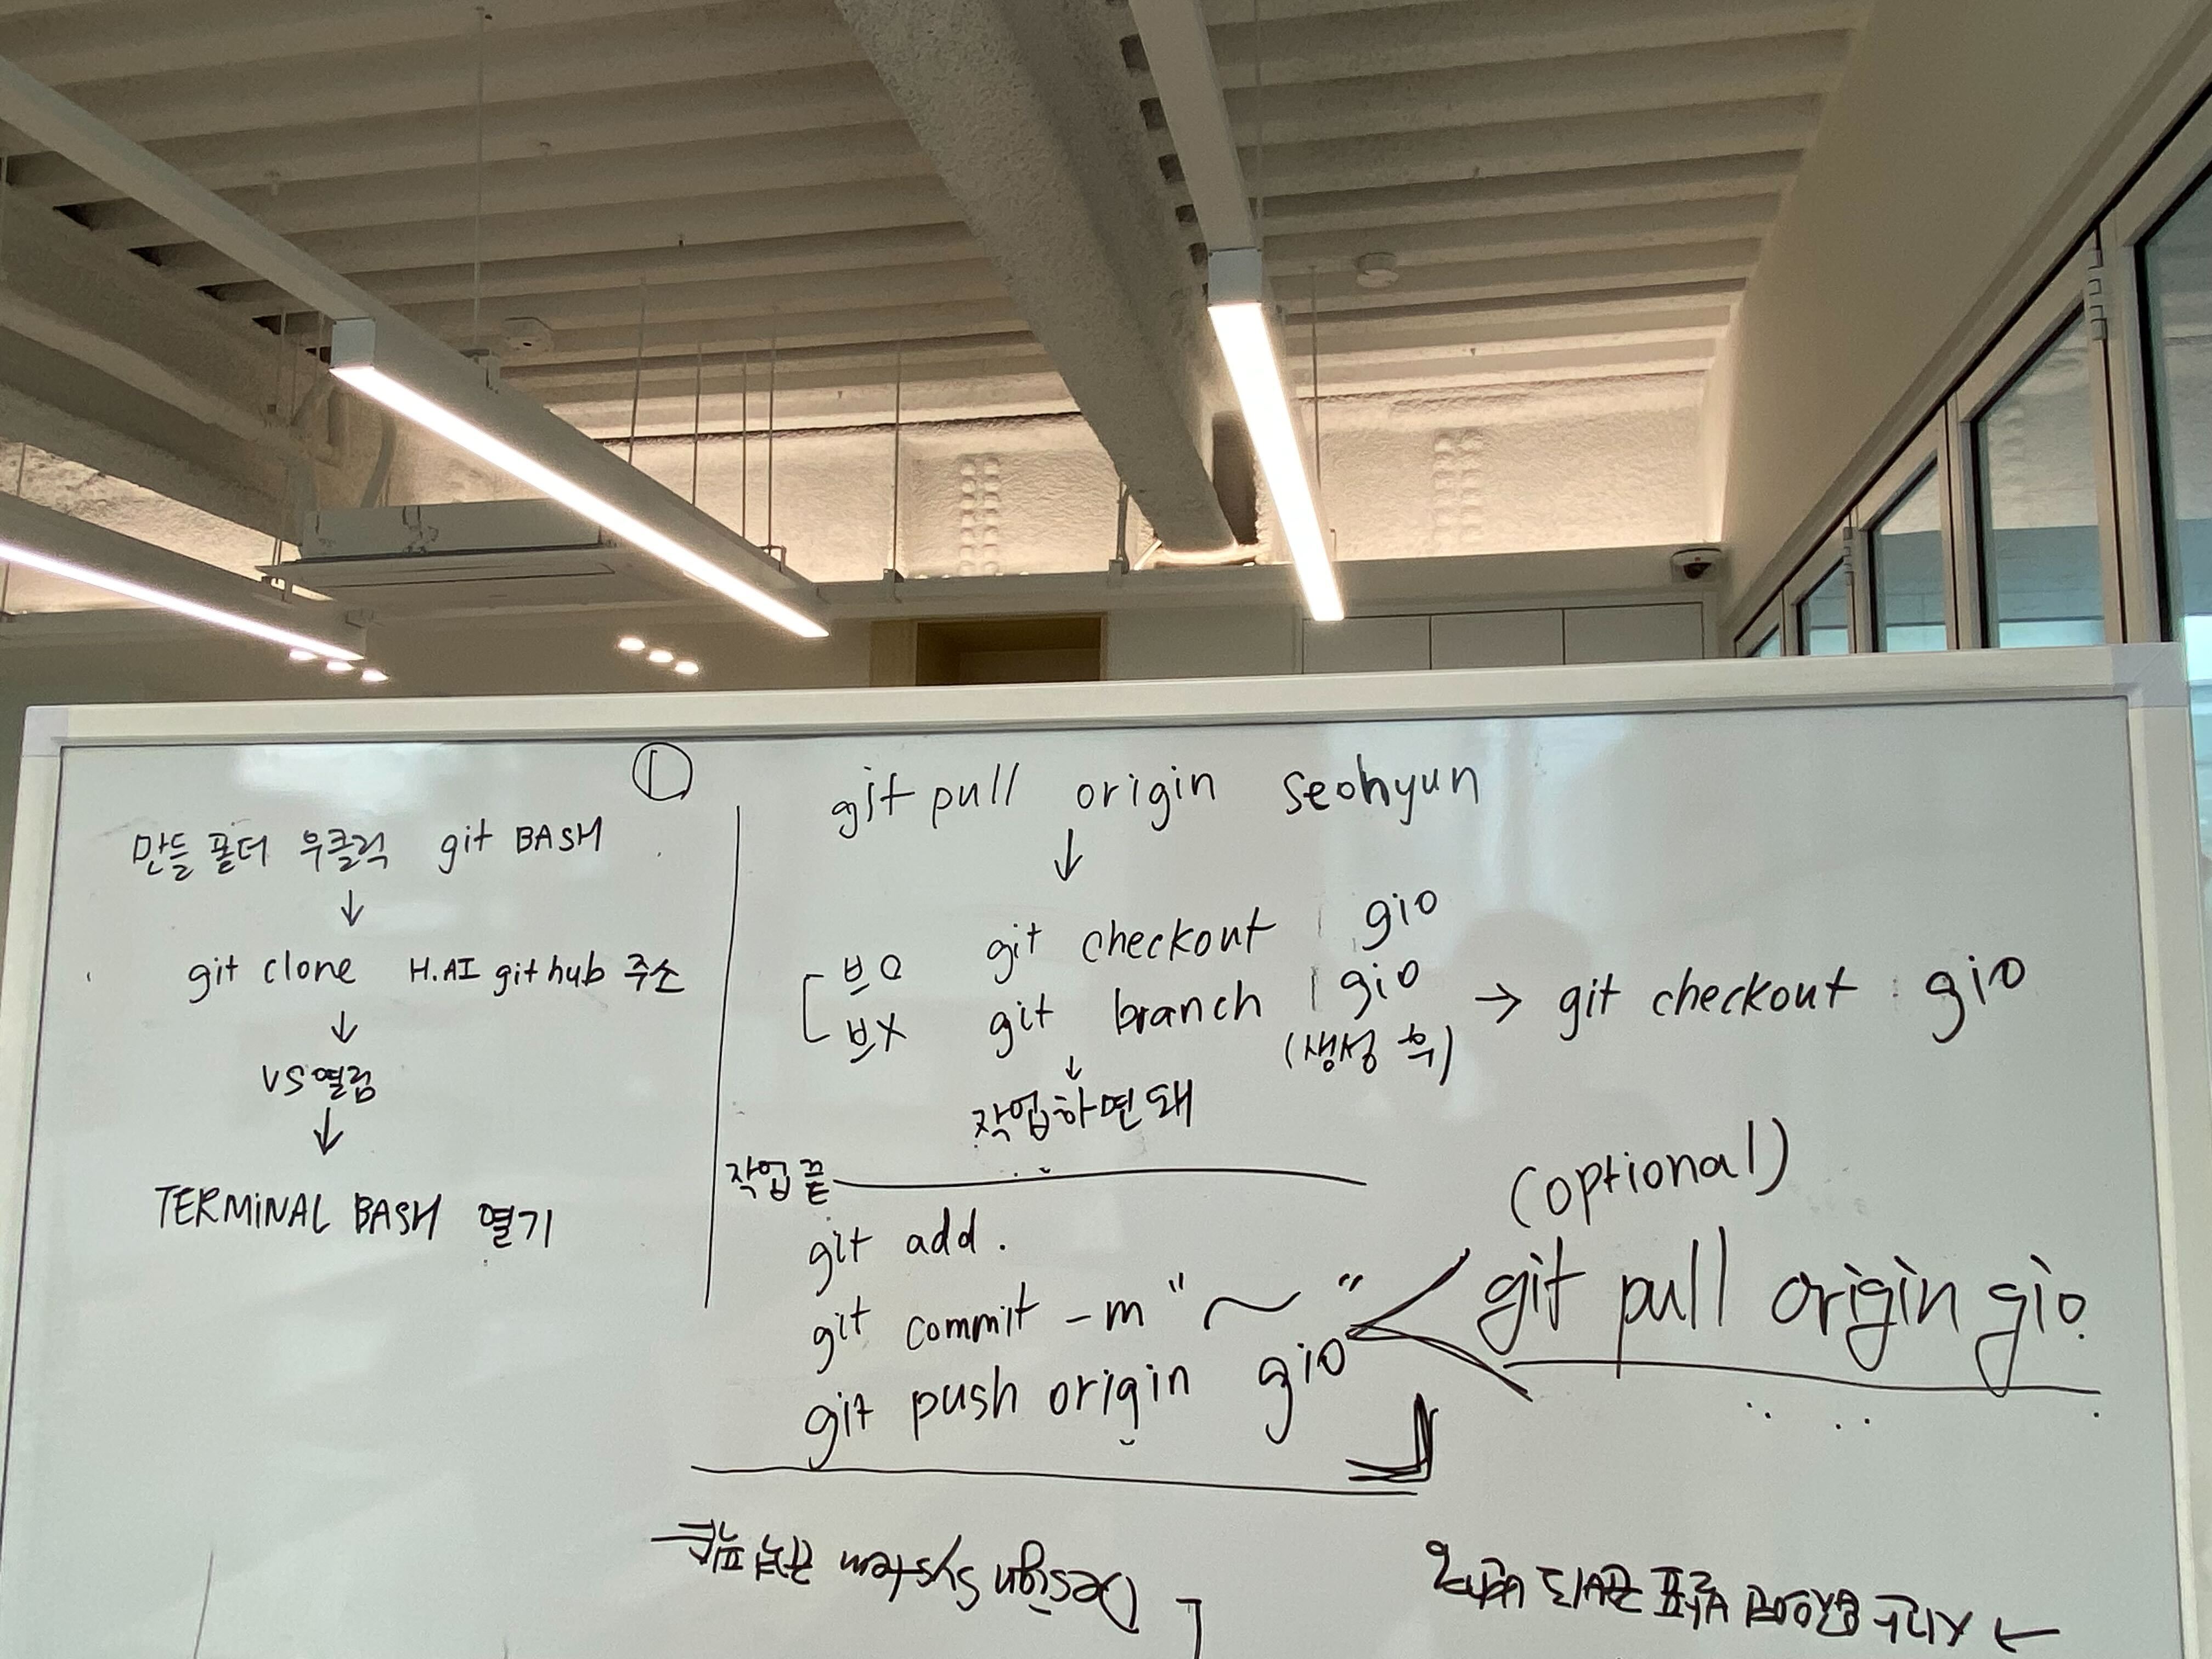 ①
만들 폴더 우클릭 git BASH
↓
git clone H.AI github 주소
↓
VS열림
↓
TERMINAL BASH 열기
git pull origin seohyun
↓
브O git checkout gio
브X git branch gio → git checkout gio
(생성 후)
↓
작업하면 돼
작업 끝
git add .
git commit -m "~"
git push origin gio
(optional)
git pull origin gio
Design System